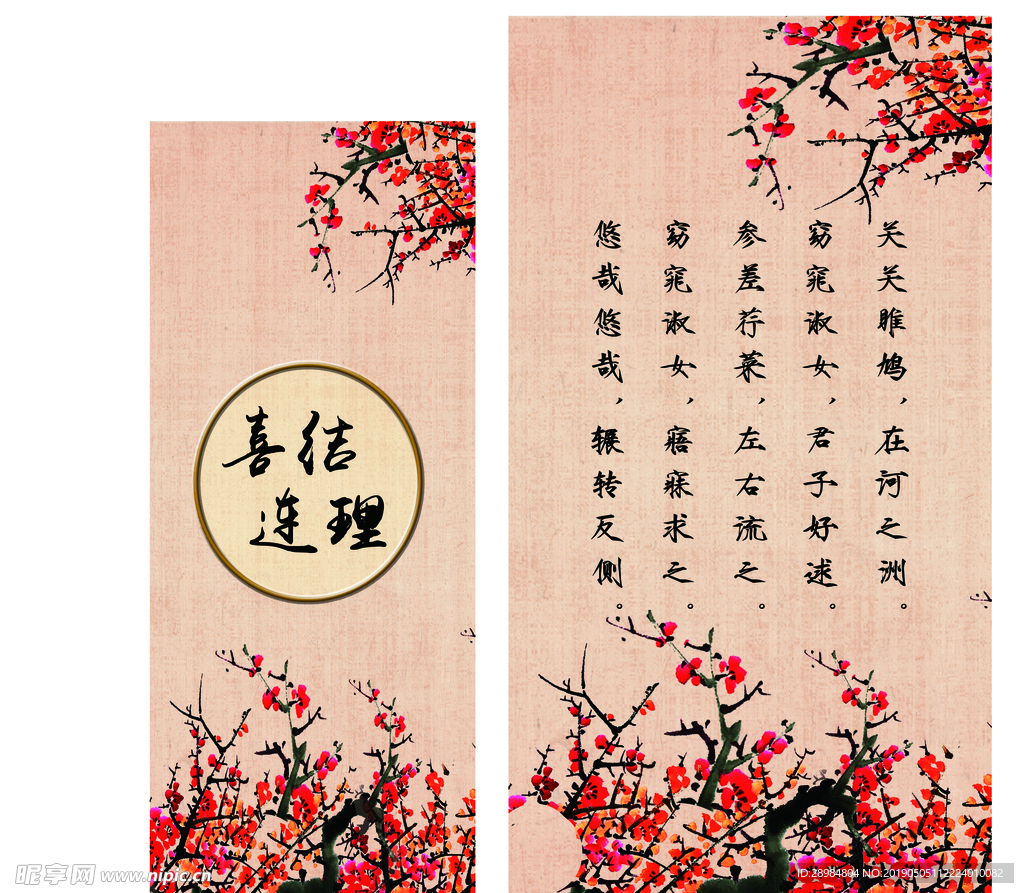 喜结
连理
关关雎鸠，在河之洲。
窈窕淑女，君子好逑。
参差荇菜，左右流之。
窈窕淑女，寤寐求之。
悠哉悠哉，辗转反侧。
昵享网 www.nipic.cn
ID:28984804 NO:20190505112224910082